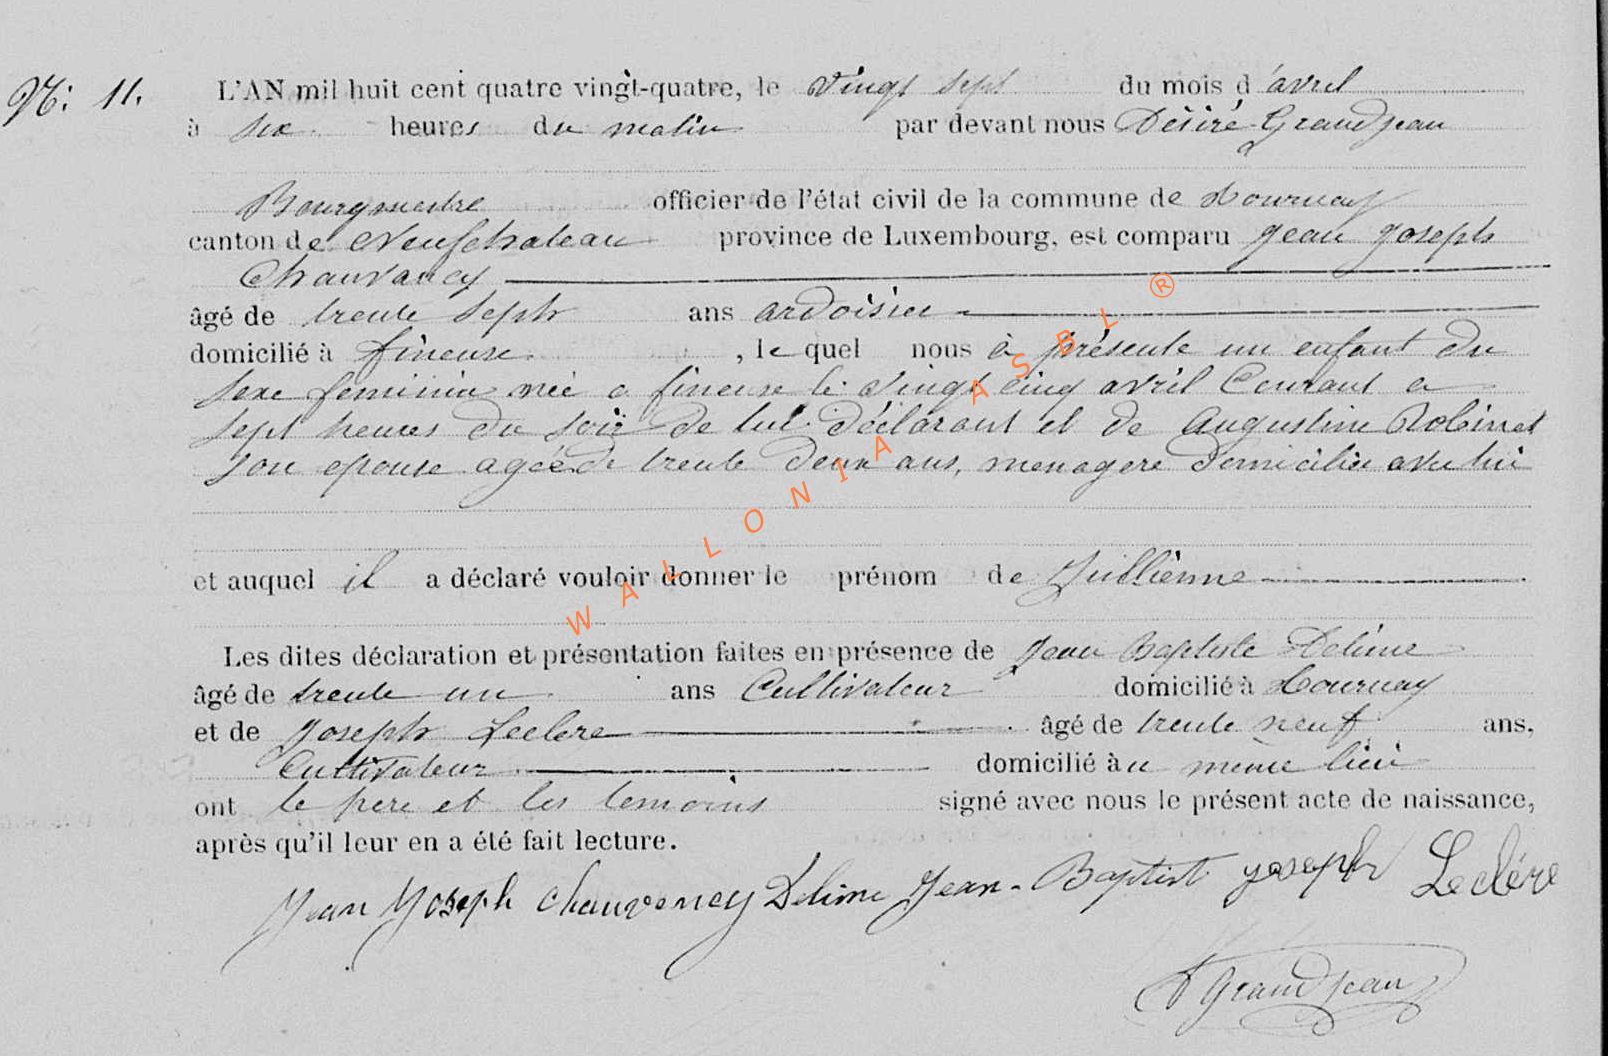 N°: 11. L'AN mil huit cent quatre vingt-quatre, le vingt sept du mois d'avril
à six heures du matin par devant nous Désiré Grandjean
Bourgmestre officier de l'état civil de la commune de Tournay
canton de Neufchateau province de Luxembourg, est comparu Jean Joseph
Chauvancy
âgé de trente sept ans ardoisier
domicilié à fineuse , le quel nous à présenté un enfant du
sexe feminin née a fineuse le vingt cinq avril Courant a
sept heures du soir de lui déclarant et de Augustine Robinet
son epouse agée de trente deux ans, menagere domiciliée avec lui
et auquel il a déclaré vouloir donner le prénom de Jullienne
Les dites déclaration et présentation faites en présence de Jean Baptiste Delime
âgé de trente un ans Cultivateur domicilié à Tournay
et de Joseph Leclere âgé de trente neuf ans,
Cultivateur domicilié àu même lieu
ont le père et les temoins signé avec nous le présent acte de naissance,
après qu'il leur en a été fait lecture.
Jean Joseph chauvency Delime Jean-Baptist joseph Leclére
D Grandjean
WALLONIA ASBL ®